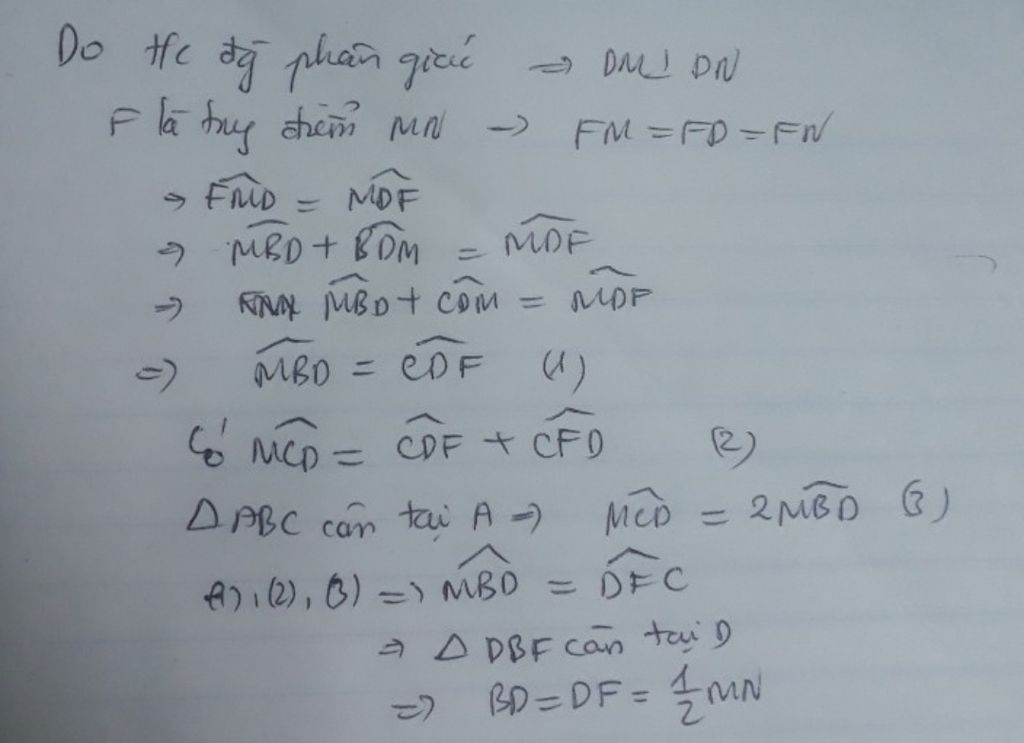 Do t/c đg̃ phân giác ⇒ DM ⊥ DN
F là trug điểm MN → FM = FD = FN
⇒ \widehat{FMD} = \widehat{MDF}
⇒ \widehat{MBD} + \widehat{BDM} = \widehat{MDF}
⇒ \widehat{MBD} + \widehat{CDM} = \widehat{MDF}
⇒ \widehat{MBD} = \widehat{CDF} (1)
Có \widehat{MCD} = \widehat{CDF} + \widehat{CFD} (2)
Δ ABC cân tại A ⇒ \widehat{MCD} = 2\widehat{MBD} (3)
(1), (2), (3) ⇒ \widehat{MBD} = \widehat{DFC}
⇒ Δ DBF cân tại D
⇒ BD = DF = \frac{1}{2} MN